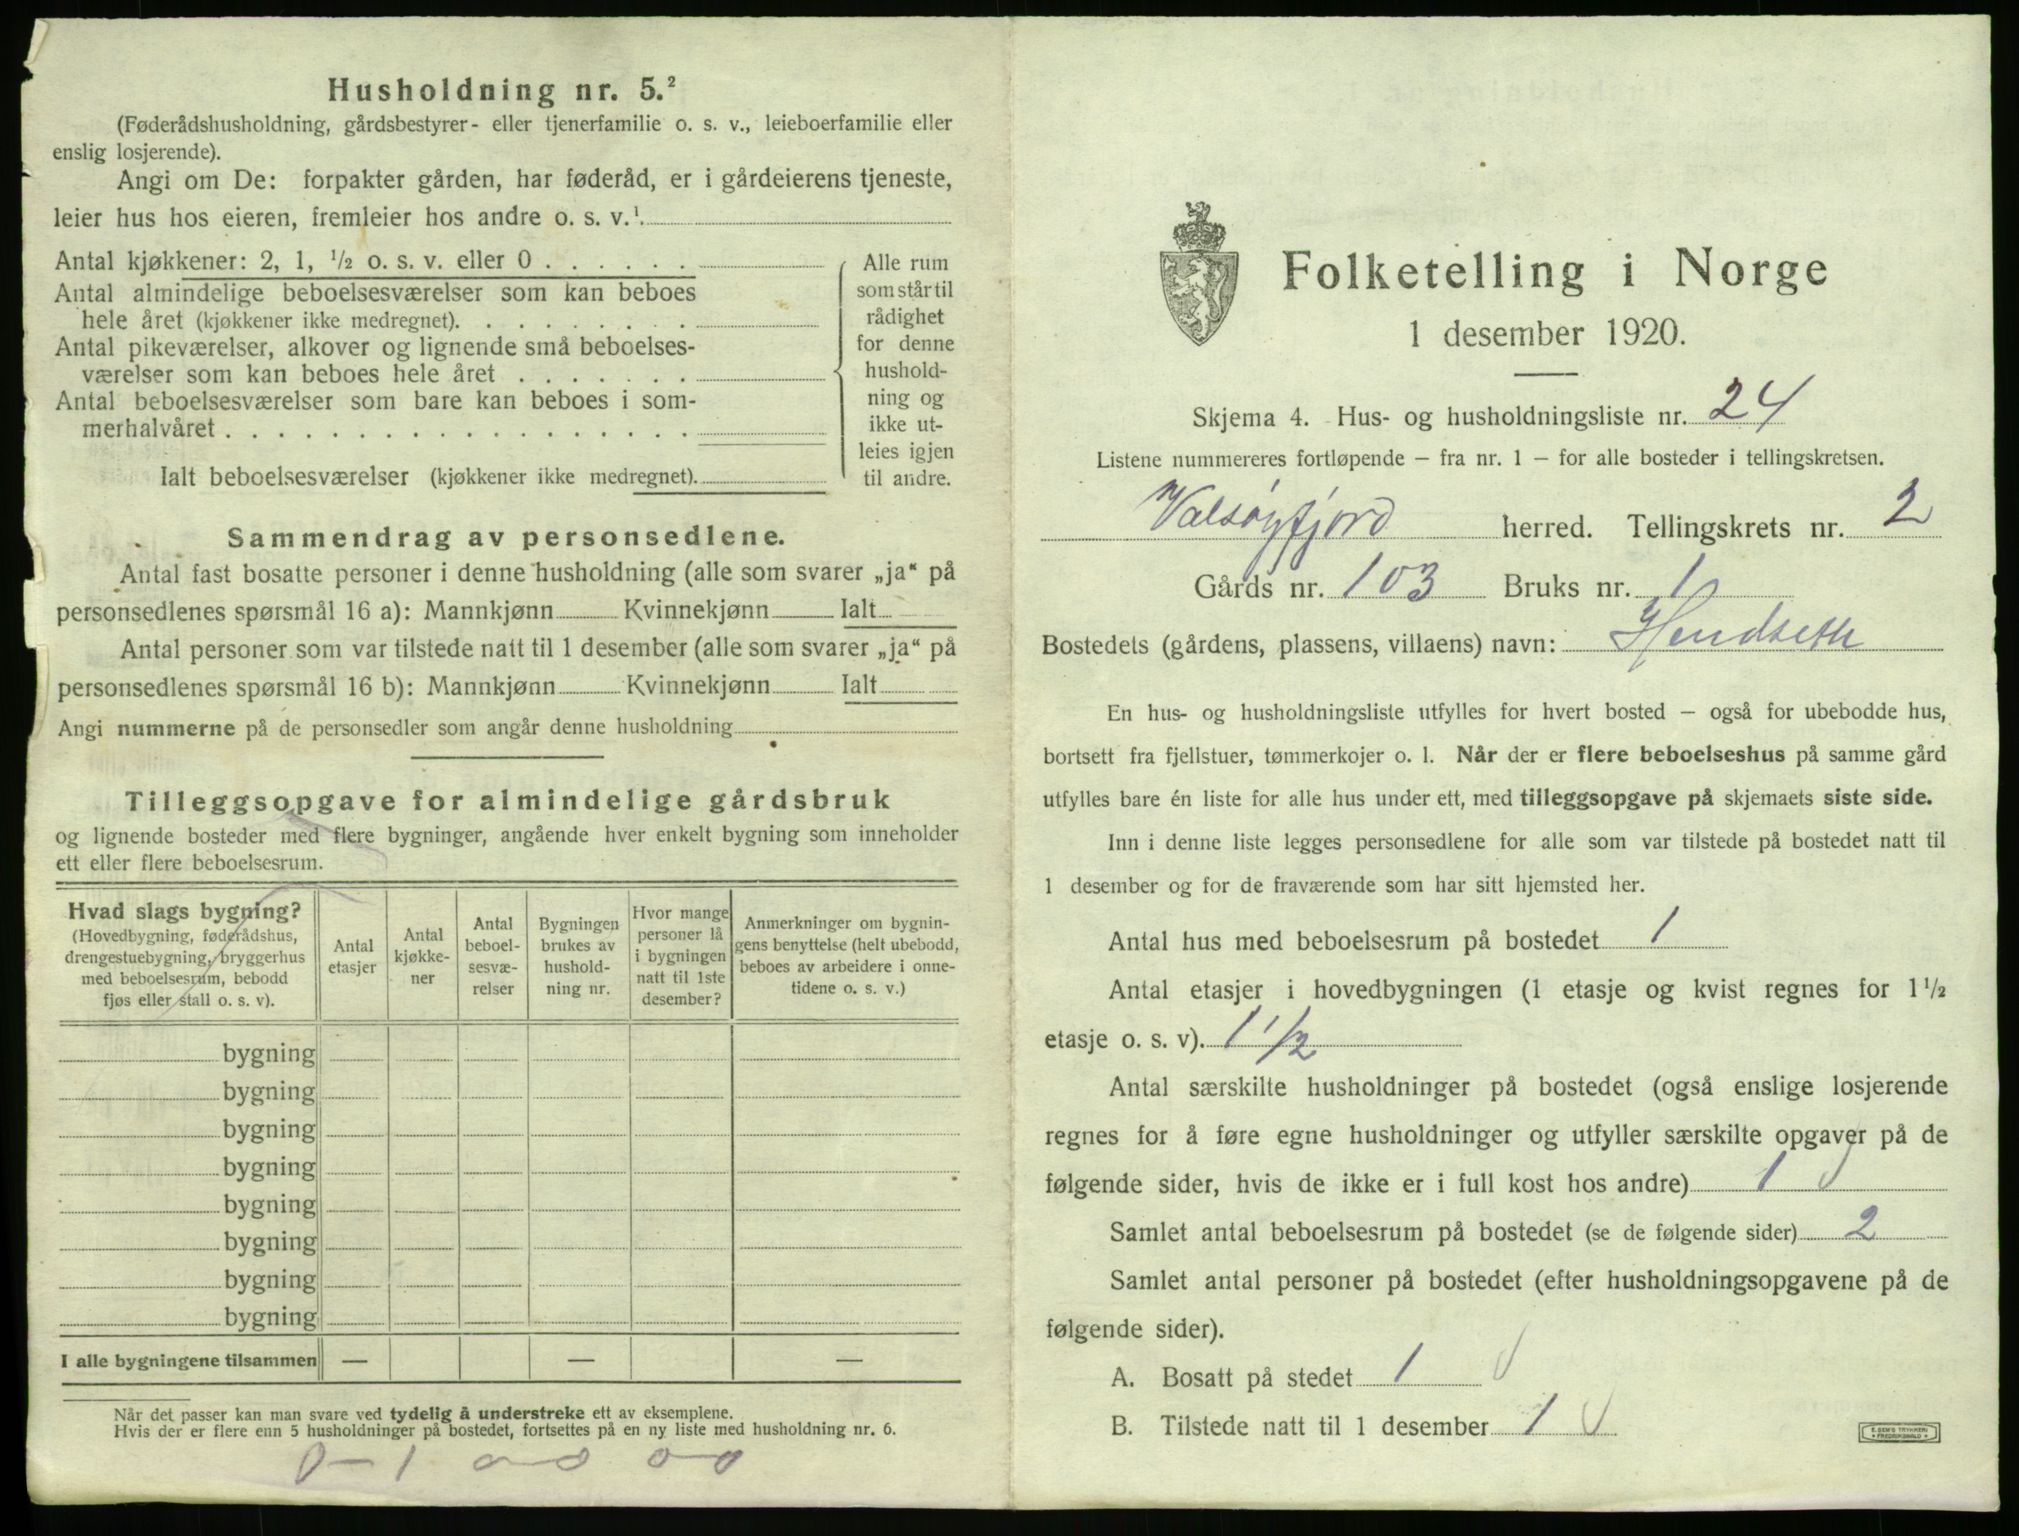 Husholdning nr. 5.²
(Føderådshusholdning, gårdsbestyrer- eller tjenerfamilie o. s. v., leieboerfamilie eller
enslig losjerende).
Angi om De: forpakter gården, har føderåd, er i gårdeierens tjeneste,
leier hus hos eieren, fremleier hos andre o. s. v.¹
Antal kjøkkener: 2, 1, ½ o. s. v. eller 0 . . . . . .
Antal almindelige beboelsesværelser som kan beboes
hele året (kjøkkener ikke medregnet). . . . . . . . .
Antal pikeværelser, alkover og lignende små beboelses-
værelser som kan beboes hele året . . . . . . .
Antal beboelsesværelser som bare kan beboes i som-
merhalvåret . . . . . . . . . . . . . . . . . .
Ialt beboelsesværelser (kjøkkener ikke medregnet).
Alle rum
som står til
rådighet
for denne
hushold-
ning og
ikke ut-
leies igjen
til andre.
Sammendrag av personsedlene.
Antal fast bosatte personer i denne husholdning (alle som svarer „ja“ på
personsedlenes spørsmål 16 a): Mannkjønn Kvinnekjønn Ialt
Antal personer som var tilstede natt til 1 desember (alle som svarer „ja“ på
personsedlenes spørsmål 16 b): Mannkjønn Kvinnekjønn Ialt
Angi nummerne på de personsedler som angår denne husholdning
Tilleggsopgave for almindelige gårdsbruk
og lignende bosteder med flere bygninger, angående hver enkelt bygning som inneholder
ett eller flere beboelsesrum.
Hvad slags bygning?
(Hovedbygning, føderådshus,
drengestuebygning, bryggerhus
med beboelsesrum, bebodd
fjøs eller stall o. s. v).
Antal
etasjer
Antal
kjøkke-
ner
Antal
beboel-
sesvæ-
relser
Bygningen
brukes av
hushold-
ning nr.
Hvor mange
personer lå
i bygningen
natt til 1ste
desember?
Anmerkninger om bygnin-
gens benyttelse (helt ubebodd,
beboes av arbeidere i onne-
tidene o. s. v.)
bygning
bygning
bygning
bygning
bygning
bygning
bygning
bygning
I alle bygningene tilsammen — — —
Når det passer kan man svare ved tydelig å understreke ett av eksemplene.
Hvis der er flere enn 5 husholdninger på bostedet, fortsettes på en ny liste med husholdning nr. 6.
0-1 0-0 0-0
Folketelling i Norge
1 desember 1920.
Skjema 4. Hus- og husholdningsliste nr. 24
Listene nummereres fortløpende – fra nr. 1 – for alle bosteder i tellingskretsen.
Valsøyfjord herred. Tellingskrets nr. 2
Gårds nr. 103 Bruks nr. 1
Bostedets (gårdens, plassens, villaens) navn: Hendseth
En hus- og husholdningsliste utfylles for hvert bosted – også for ubebodde hus,
bortsett fra fjellstuer, tømmerkojer o. l. Når der er flere beboelseshus på samme gård
utfylles bare én liste for alle hus under ett, med tilleggsopgave på skjemaets siste side.
Inn i denne liste legges personsedlene for alle som var tilstede på bostedet natt til
1 desember og for de fraværende som har sitt hjemsted her.
Antal hus med beboelsesrum på bostedet 1
Antal etasjer i hovedbygningen (1 etasje og kvist regnes for 1½
etasje o. s. v). 1 1/2
Antal særskilte husholdninger på bostedet (også enslige losjerende
regnes for å føre egne husholdninger og utfyller særskilte opgaver på de
følgende sider, hvis de ikke er i full kost hos andre) 1
Samlet antal beboelsesrum på bostedet (se de følgende sider) 2
Samlet antal personer på bostedet (efter husholdningsopgavene på de
følgende sider).
A. Bosatt på stedet 1
B. Tilstede natt til 1 desember 1
E. SEM'S TRYKKERI
FREDRIKSHALD